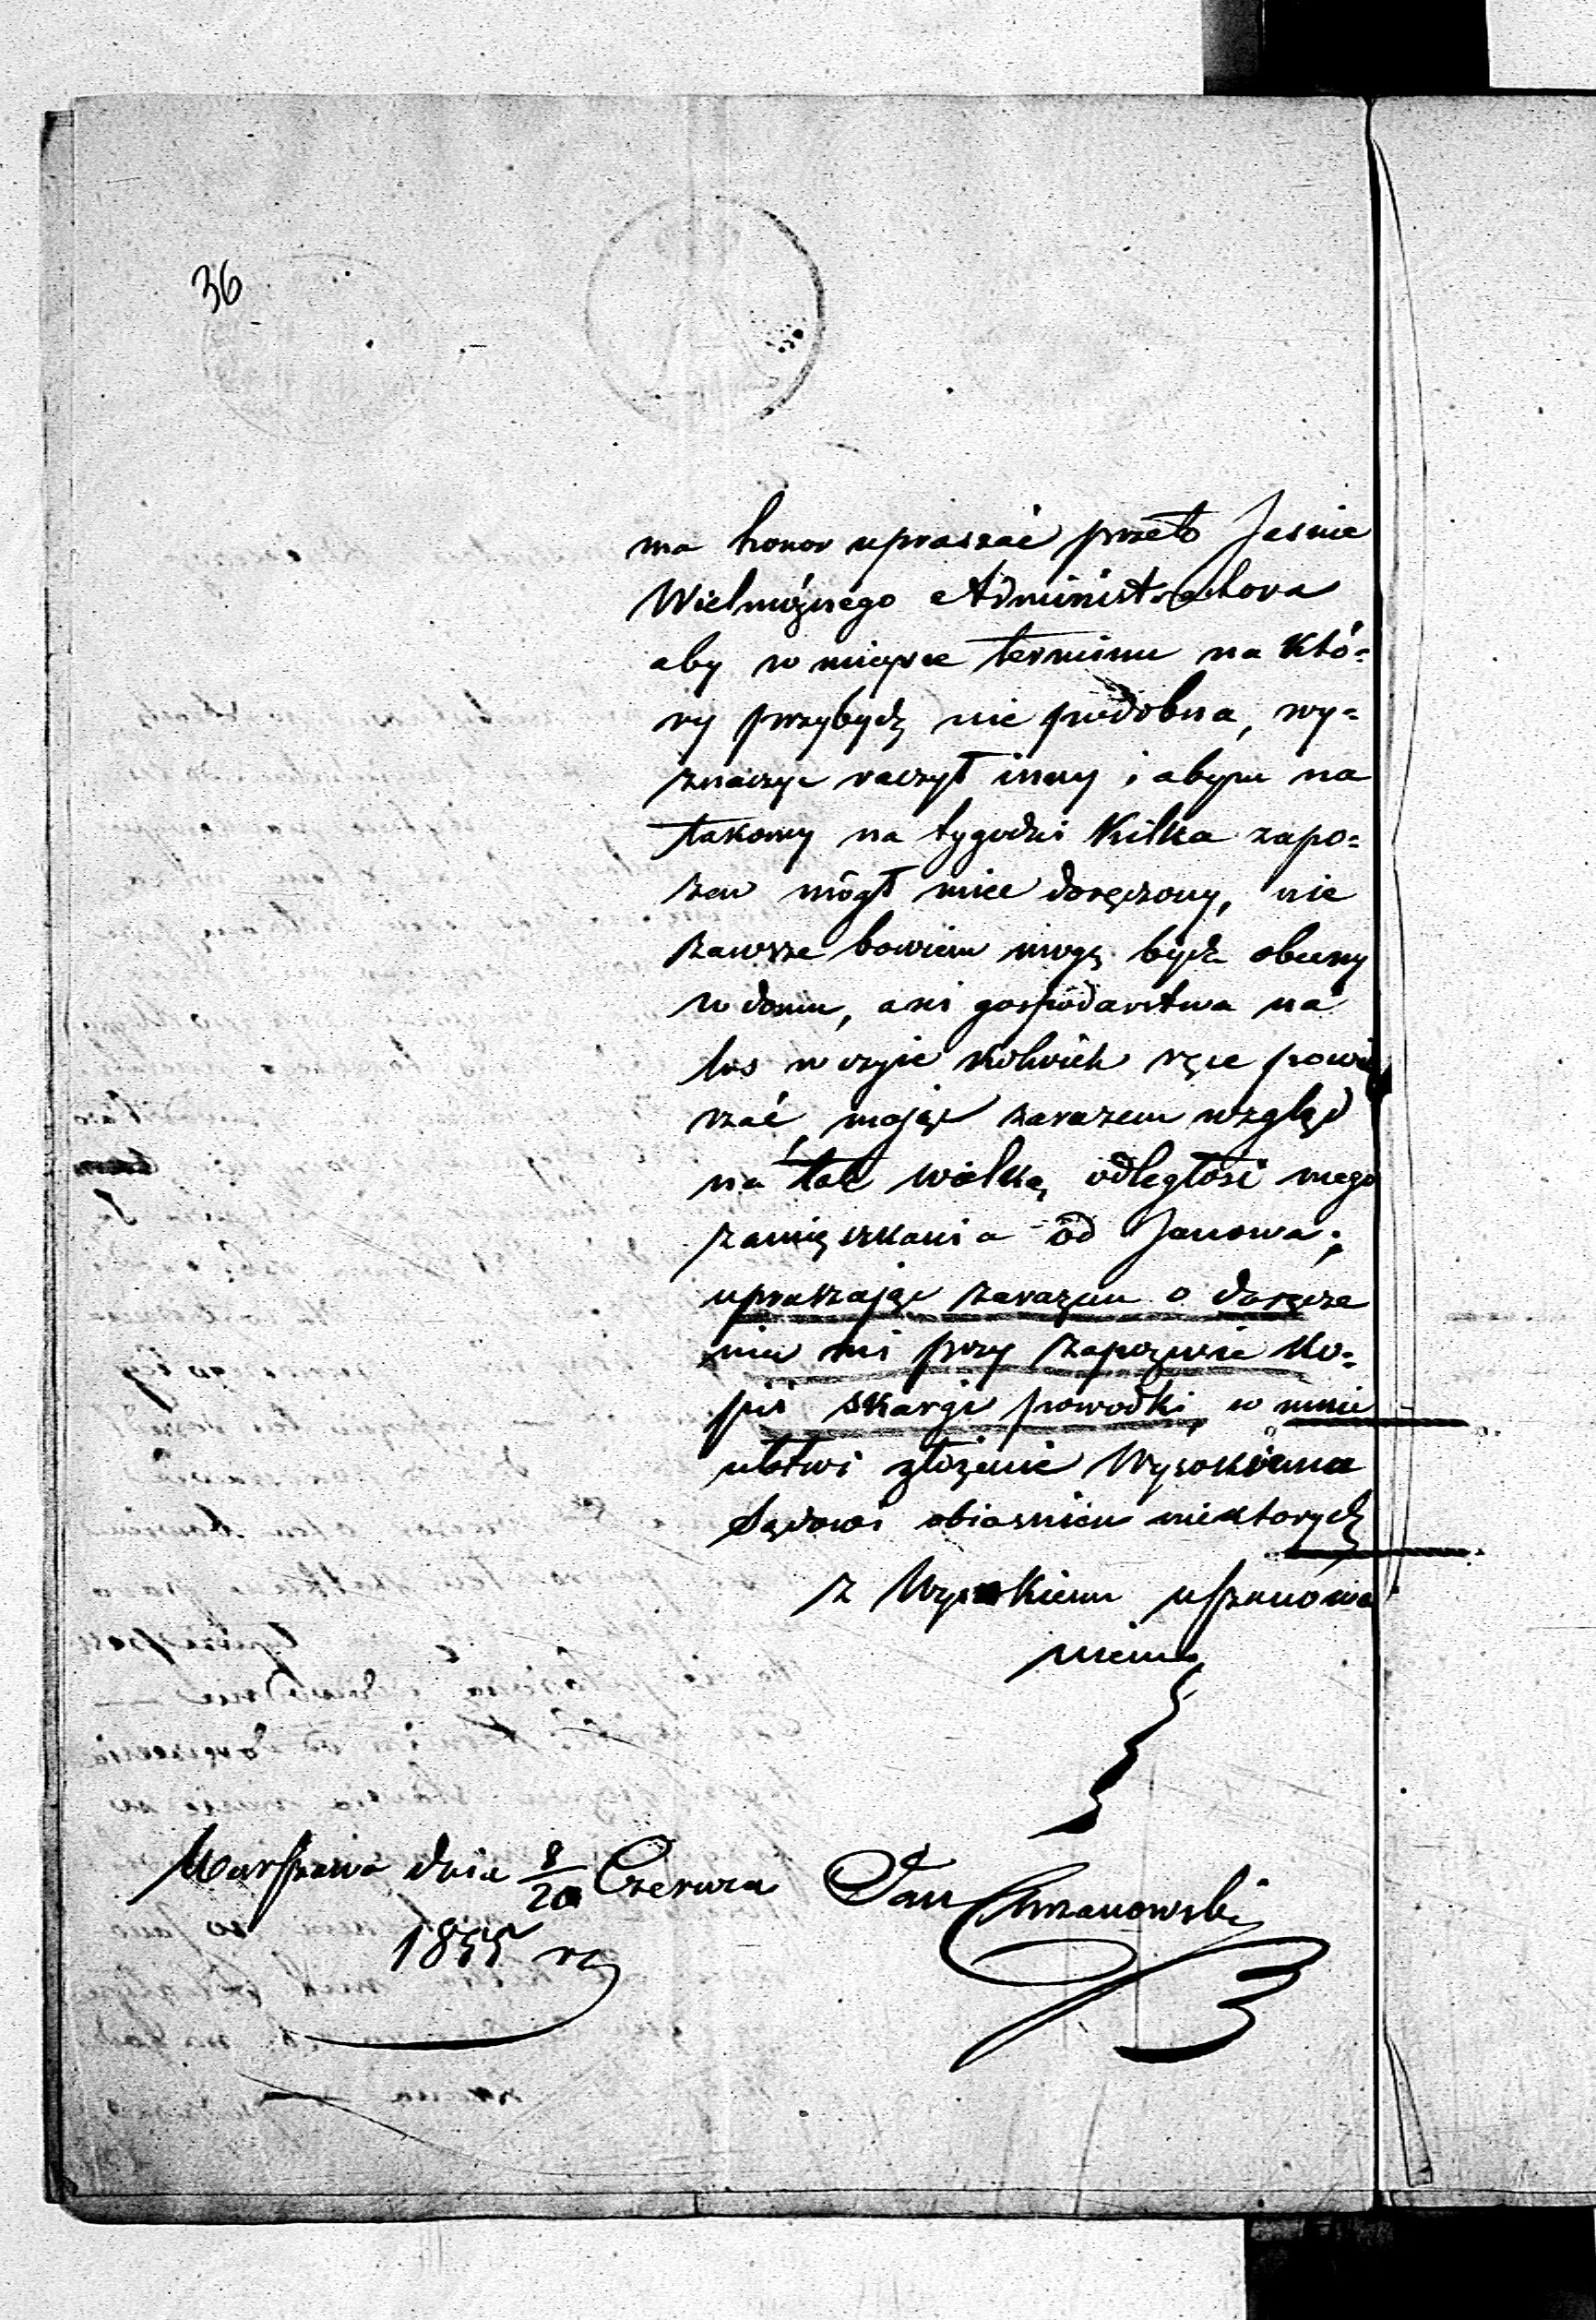 36
ma honor upraszać przeto Jasnie
Wielmożnego Administratora
aby w miejsce terminu na któ=
ry przybydź nie podobna, wy=
znaczyc raczył inny i abym na
takowy na tygodni kilka zapo=
zew mógł miec doręczony, nie
zawsze bowiem mogę bydz obecny
w domu, ani gospodarstwa na
los w czyie kolwiek ręce powie
rzać, mając zarazem wzgląd
na tak wielką odległość mego
zamięszkania od Janowa;
upraszając zarazem o doręcze
nie mi przy zapozwie ko=
pii skargi powodki, w mnie
ułatwi złożenie Wysokiemu
Sądowi obiasnien niektorych
z Wysokiem uszanowa
niem
Warszawa dnia 8/20 Czerwca
1855 r.
Jan Chrzanowski